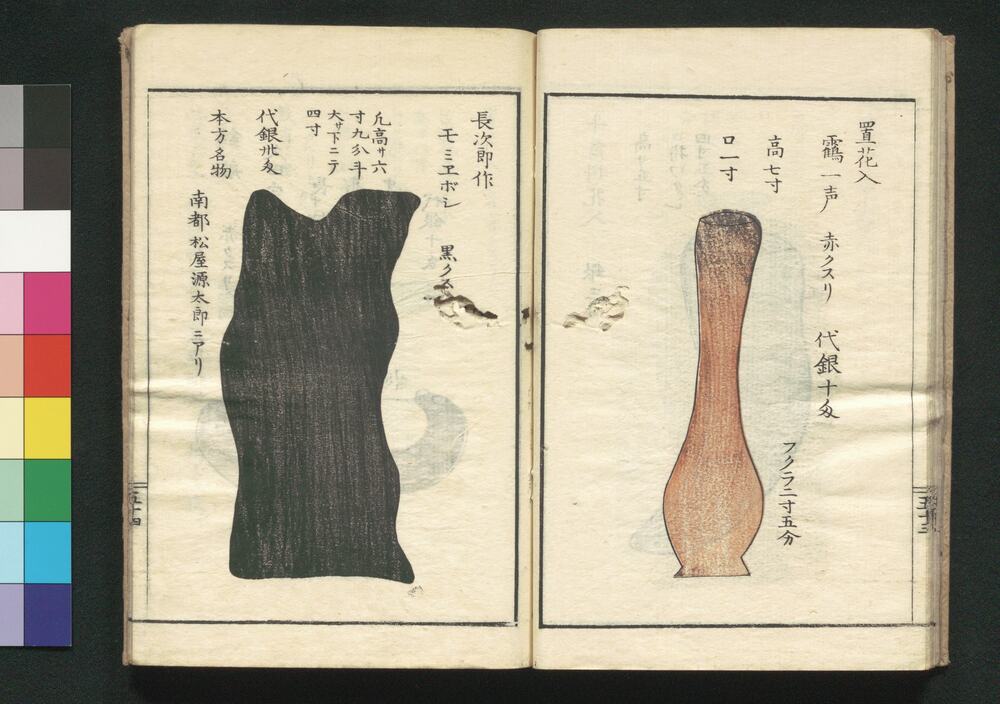 置花入
鶴一声　赤クスリ　代銀十匁
高七寸
口一寸
フクラ二寸五分
五十三
長次郎作
モミエボシ　黒クスリ
凡高サ六
寸九分斗
大サ下ニテ
四寸
代銀卅匁
本方名物
南都松屋源太郎ニアリ
五十四